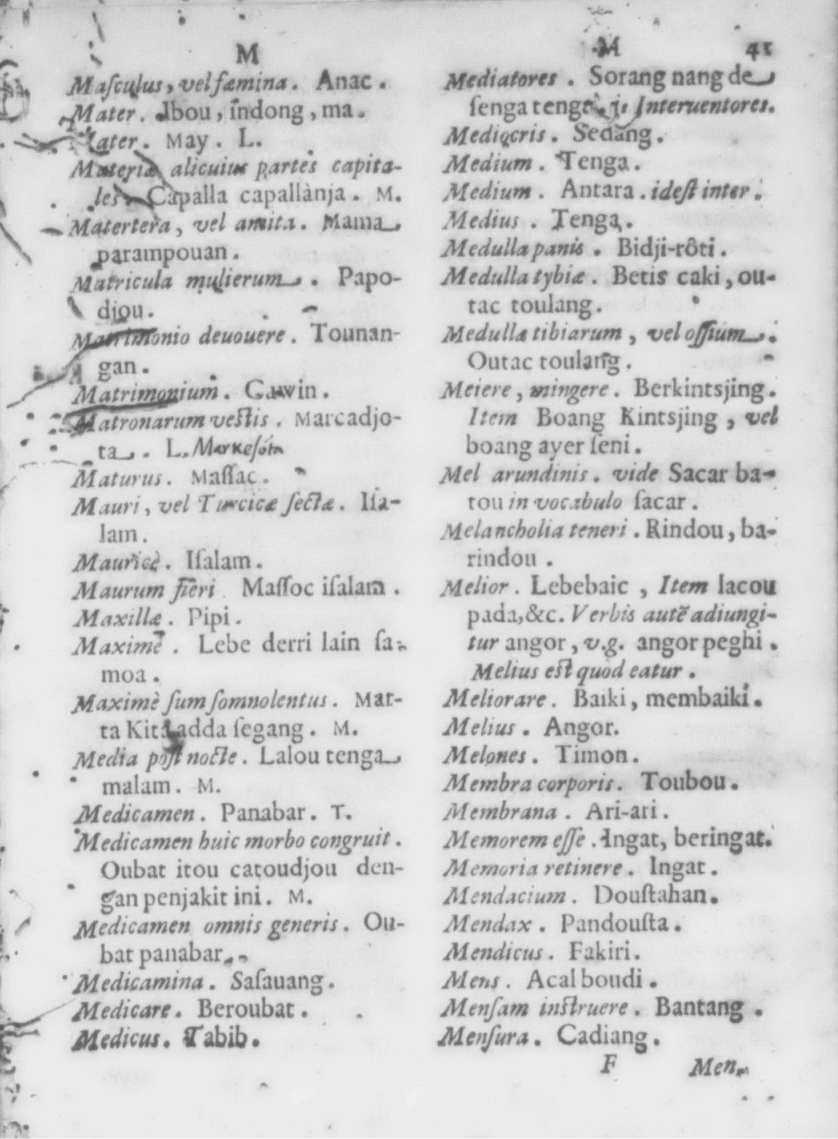 M
Maſculus, vel fæmina. Anac.
Mater. Ibou, indong, ma.
Mater. May. L.
Materiæ alicuius partes capita-
les. Capalla capallànja. M.
Matertera, vel amita. Mama
parampouan.
Matricula mulierum. Papo-
djou.
Matrimonio deuouere. Tounan-
gan.
Matrimonium. Cawin.
Matronarum veſtis. Marcadjo-
ta. L.
Maturus. Maſſac.
Mauri, vel Turcicæ ſectæ. Iſa-
lam.
Mauricè. Iſalam.
Maurum fieri. Maſſoc iſalam.
Maxillæ. Pipi.
Maximè. Lebe derri lain ſa-
moa.
Maximè ſum ſomnolentus. Mat-
ta Kita adda ſegang. M.
Media poſt nocte. Lalou tenga
malam. M.
Medicamen. Panabar. T.
Medicamen huic morbo congruit.
Oubat itou catoudjou den-
gan penjakit ini. M.
Medicamen omnis generis. Ou-
bat panabar.
Medicamina. Saſauang.
Medicare. Beroubat.
Medicus. Tabib.
M 41
Mediatores. Sorang nang de
ſenga tenga, Interuentores.
Mediocris. Sedang.
Medium. Tenga.
Medium. Antara. ideſt inter.
Medius. Tenga.
Medulla panis. Bidji-rôti.
Medulla tybiæ. Betis caki, ou-
tac toulang.
Medulla tibiarum, vel oſſium.
Outac toulang.
Meiere, mingere. Berkintsjing.
Item Boang Kintsjing, vel
boang ayer ſeni.
Mel arundinis. vide Sacar ba-
tou in vocabulo ſacar.
Melancholia teneri. Rindou, ba-
rindou.
Melior. Lebebaic, Item lacou
pada, &c. Verbis autē adiungi-
tur angor, v.g. angor peghi.
Melius eſt quod eatur.
Meliorare. Baiki, membaiki.
Melius. Angor.
Melones. Timon.
Membra corporis. Toubou.
Membrana. Ari-ari.
Memorem eſſe. Ingat, beringat.
Memoria retinere. Ingat.
Mendacium. Douſtahan.
Mendax. Pandouſta.
Mendicus. Fakiri.
Mens. Acal boudi.
Menſam inſtruere. Bantang.
Menſura. Cadiang.
F Men-